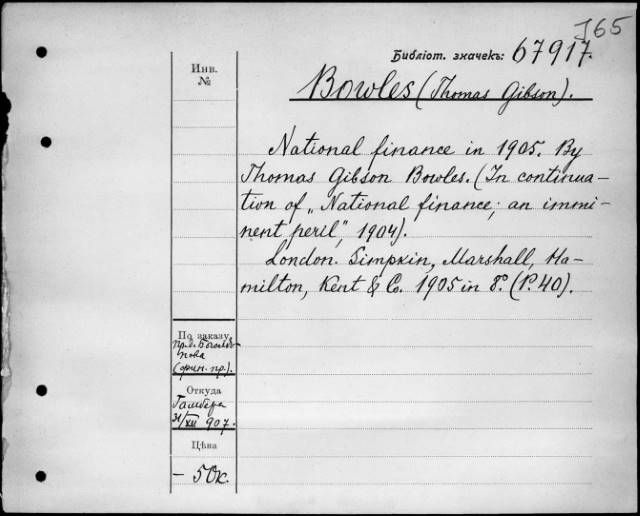 J65
Библіот. значекъ: 67917.
Bowles (Thomas Gibson).
National finance in 1905. By
Thomas Gibson Bowles. (In continua-
tion of „National finance; an immi-
nent peril", 1904).
London. Simpkin, Marshall, Ha-
milton, Kent & Co. 1905 in 8º. (P. 40).
Инв.
№
По заказу
(фин. пр.).
Откуда
31/XII 907.
Цѣна
– 50к.